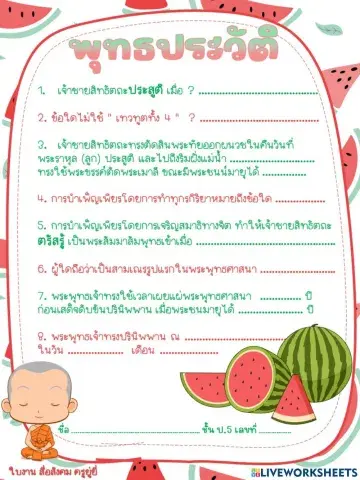 พุทธประวัติ
1. เจ้าชายสิทธิตถะประสูติ เมื่อ ? ........................................
2. ข้อใดไม่ใช่ " เทวทูตทั้ง 4 " ? ........................................
3. เจ้าชายสิทธิตถะทรงตัดสินพระทัยออกผนวชในคืนวันที่
พระราหุล (ลูก) ประสูติ และไปถึงริมฝั่งแม่น้ำ ........................
ทรงใช้พระขรรค์ตัดพระเมาลี ขณะมีพระชนม์มายุได้ ............
4. การบำเพ็ญเพียรโดยการทำทุกรกิริยาหมายถึงข้อใด ................
5. การบำเพ็ญเพียรโดยการเจริญสมาธิทางจิต ทำให้เจ้าชายสิทธิตถะ
ตรัสรู้ เป็นพระสัมมาสัมพุทธเจ้าเมื่อ ........................................
6. ผู้ใดถือว่าเป็นสามเณรรูปแรกในพระพุทธศาสนา ....................
7. พระพุทธเจ้าทรงใช้เวลาเผยแผ่พระพุทธศาสนา ............ ปี
ก่อนเสด็จดับขันปรินิพพาน เมื่อพระชนมายุได้ ................ ปี
8. พระพุทธเจ้าทรงปรินิพพาน ณ ................................
ในวัน .................... เดือน ....................
ชื่อ ........................................ ชั้น ป.5 เลขที่ ............
ใบงาน สื่อสังคม ครูยู่ยี่
LIVEWORKSHEETS